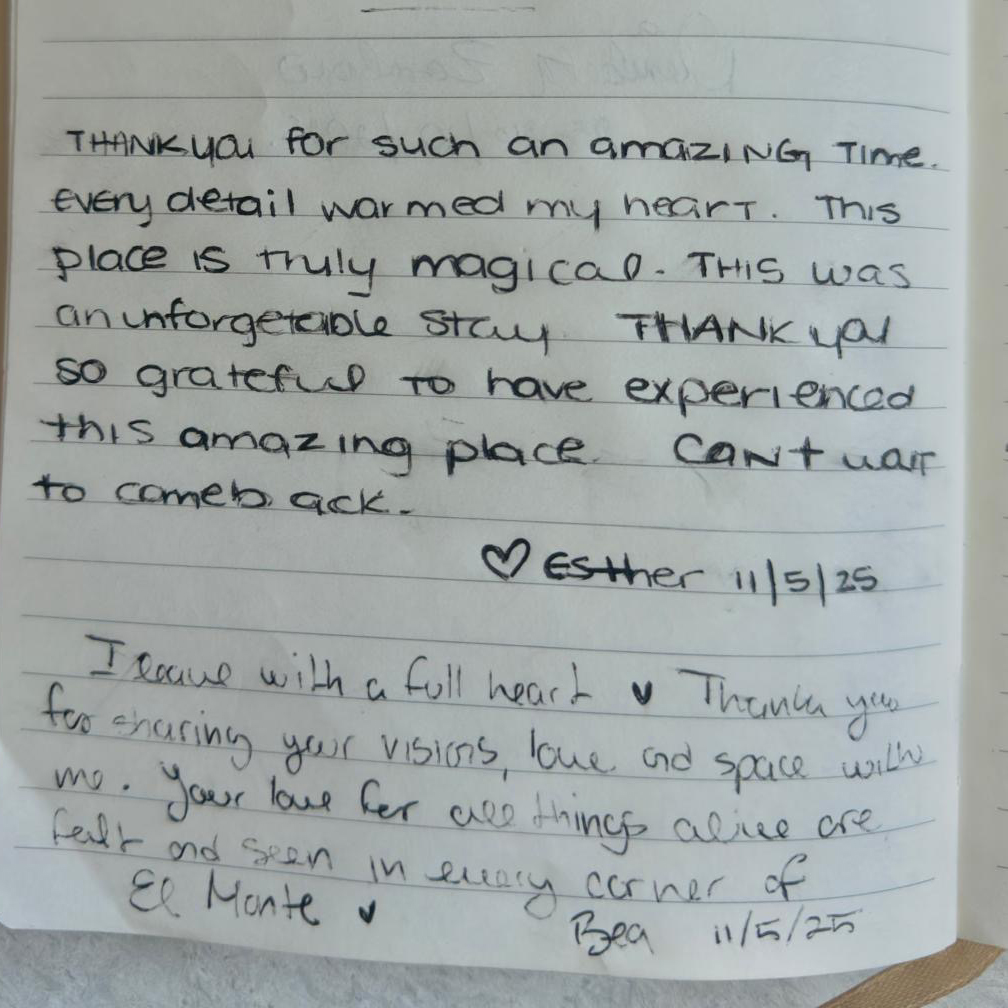 THANK you for such an amazING Time.
Every detail warmed my hearT. This
place is truly magical. THIS was
an unforgetable stay THANK you
so grateful to have experienced
this amazing place. Can't wait
to come back.
♡ Esther 11/5/25
I leave with a full heart ♥ Thank you
for sharing your visions, love and space with
me. Your love for all things alive are
felt and seen in every corner of
El Monte ♥
Bea 11/5/25